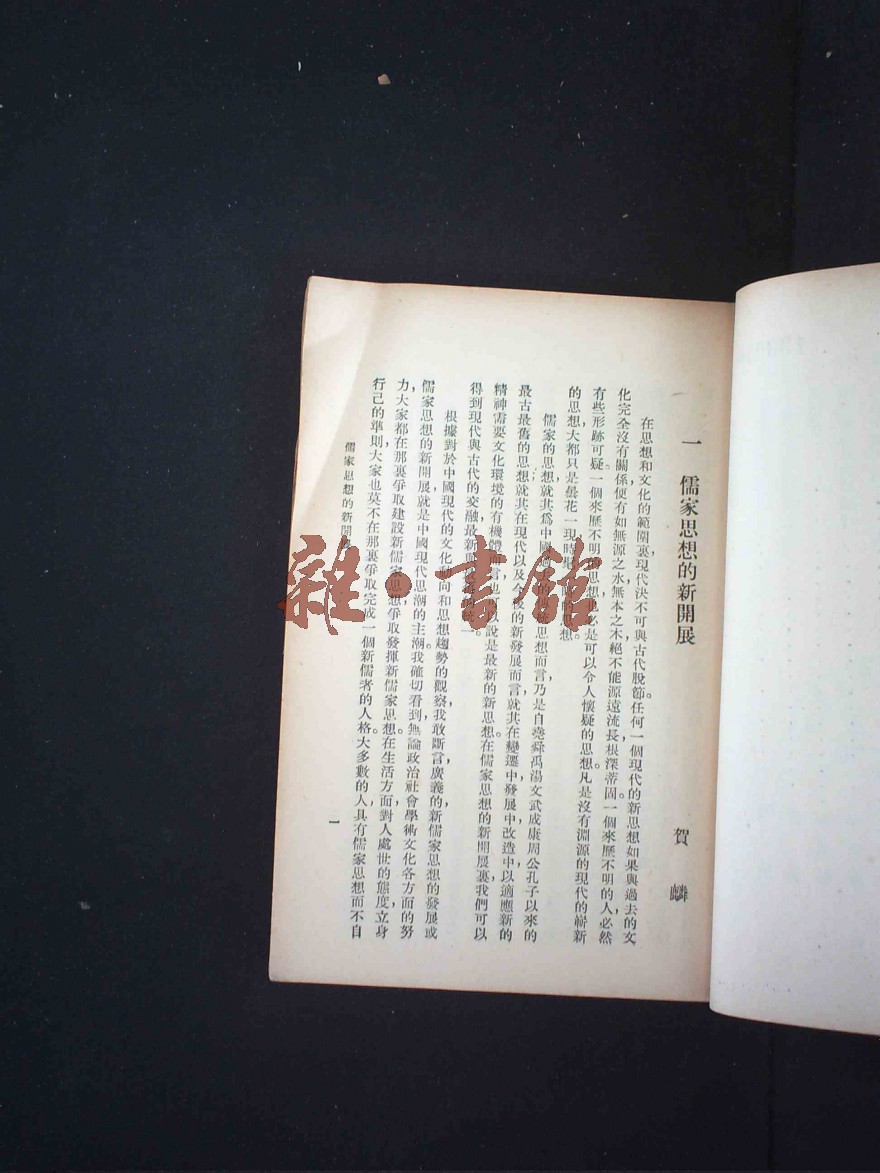 一 儒家思想的新開展
賀麟
在思想和文化的範圍裏，現代決不可與古代脫節。任何一個現代的新思想如果與過去的文
化完全沒有關係，便有如無源之水無本之木，絕不能源遠流長，根深蒂固。一個來歷不明的人，必然
有些形跡可疑。一個來歷不明的思想，也必是可以令人懷疑的思想。凡是沒有淵源的現代的嶄新
的思想，大都只是曇花一現，時的思想。
儒家的思想，就其爲中國思想而言，乃是自堯舜禹湯文武成康周公孔子以來的
最古最舊的思想；就其在現代以及今後的新發展而言，就其在變遷中，發展中，改造中以適應新的
精神需要文化環境的有機體而言，也可以說是最新的新思想。在儒家思想的新開展裏，我們可以
得到現代與古代的交融，最新與的統一。
根據對於中國現代的文化動向和思想趨勢的觀察，我敢斷言，廣義的新儒家思想的發展或
儒家思想的新開展，就是中國現代思潮的主潮。我確切看到，無論政治社會學術文化各方面的努
力，大家都在那裏爭取建設新儒家思想，爭取發揮新儒家思想。在生活方面，對人處世的態度，立身
行己的準則，大家也莫不在那裏爭取完成一個新儒者的人格。大多數的人，具有儒家思想而不自
儒家思想的新開
一
雜·書館